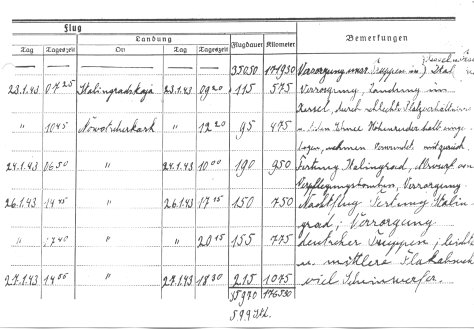 Flug
Landung
Flugdauer Kilometer Bemerkungen
Tag Tageszeit Ort Tag Tageszeit
35050 171930 Versorgung unsr. Truppen in
23.1.43 07 25 Stalingradskaja 23.1.43 09 20 115 575 Versorgung, Landung im
Kessel, durch schlechte Platzverhältnisse
" 10 45 Nowotscherkask " 12 20 95 475 u. hohen Schnee Höhenruder
bogen, nehmen Verwundete mit zurück.
24.1.43 06 50 " 24.1.43 10 00 190 950 Festung Stalingrad, Abwurf von
Verpflegungsbomben, Versorgung
26.1.43 14 45 " 26.1.43 17 15 150 750 Nachtflug Festung Stalin-
grad, Versorgung
" 17 40 " " 20 15 155 775 deutscher Truppen, leichte
u. mittlere Flakabwehr
27.1.43 14 55 " 27.1.43 18 30 215 1075 viel Scheinwerfer.
35970 176530
599 Std.